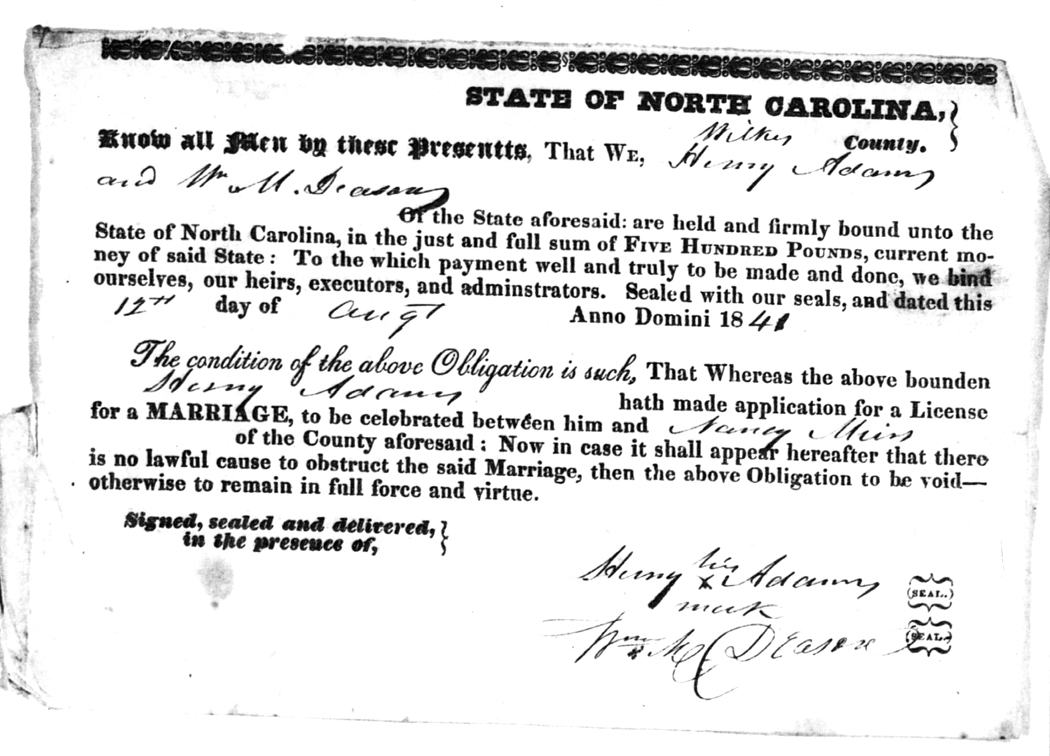 STATE OF NORTH CAROLINA,
Wilkes County.
Know all Men by these Presentts, That WE, Henry Adams
and Wm M. Deason
Of the State aforesaid: are held and firmly bound unto the
State of North Carolina, in the just and full sum of FIVE HUNDRED POUNDS, current mo-
ney of said State: To the which payment well and truly to be made and done, we bind
ourselves, our heirs, executors, and adminstrators. Sealed with our seals, and dated this
12TH day of Augt Anno Domini 1841
The condition of the above Obligation is such, That Whereas the above bounden
Henry Adams hath made application for a License
for a MARRIAGE, to be celebrated between him and Nancy
of the County aforesaid: Now in case it shall appear hereafter that there
is no lawful cause to obstruct the said Marriage, then the above Obligation to be void—
otherwise to remain in full force and virtue.
Signed, sealed and delivered,
in the presence of,
Henry his x Adams (SEAL.)
mark
Wm M Deason (SEAL.)